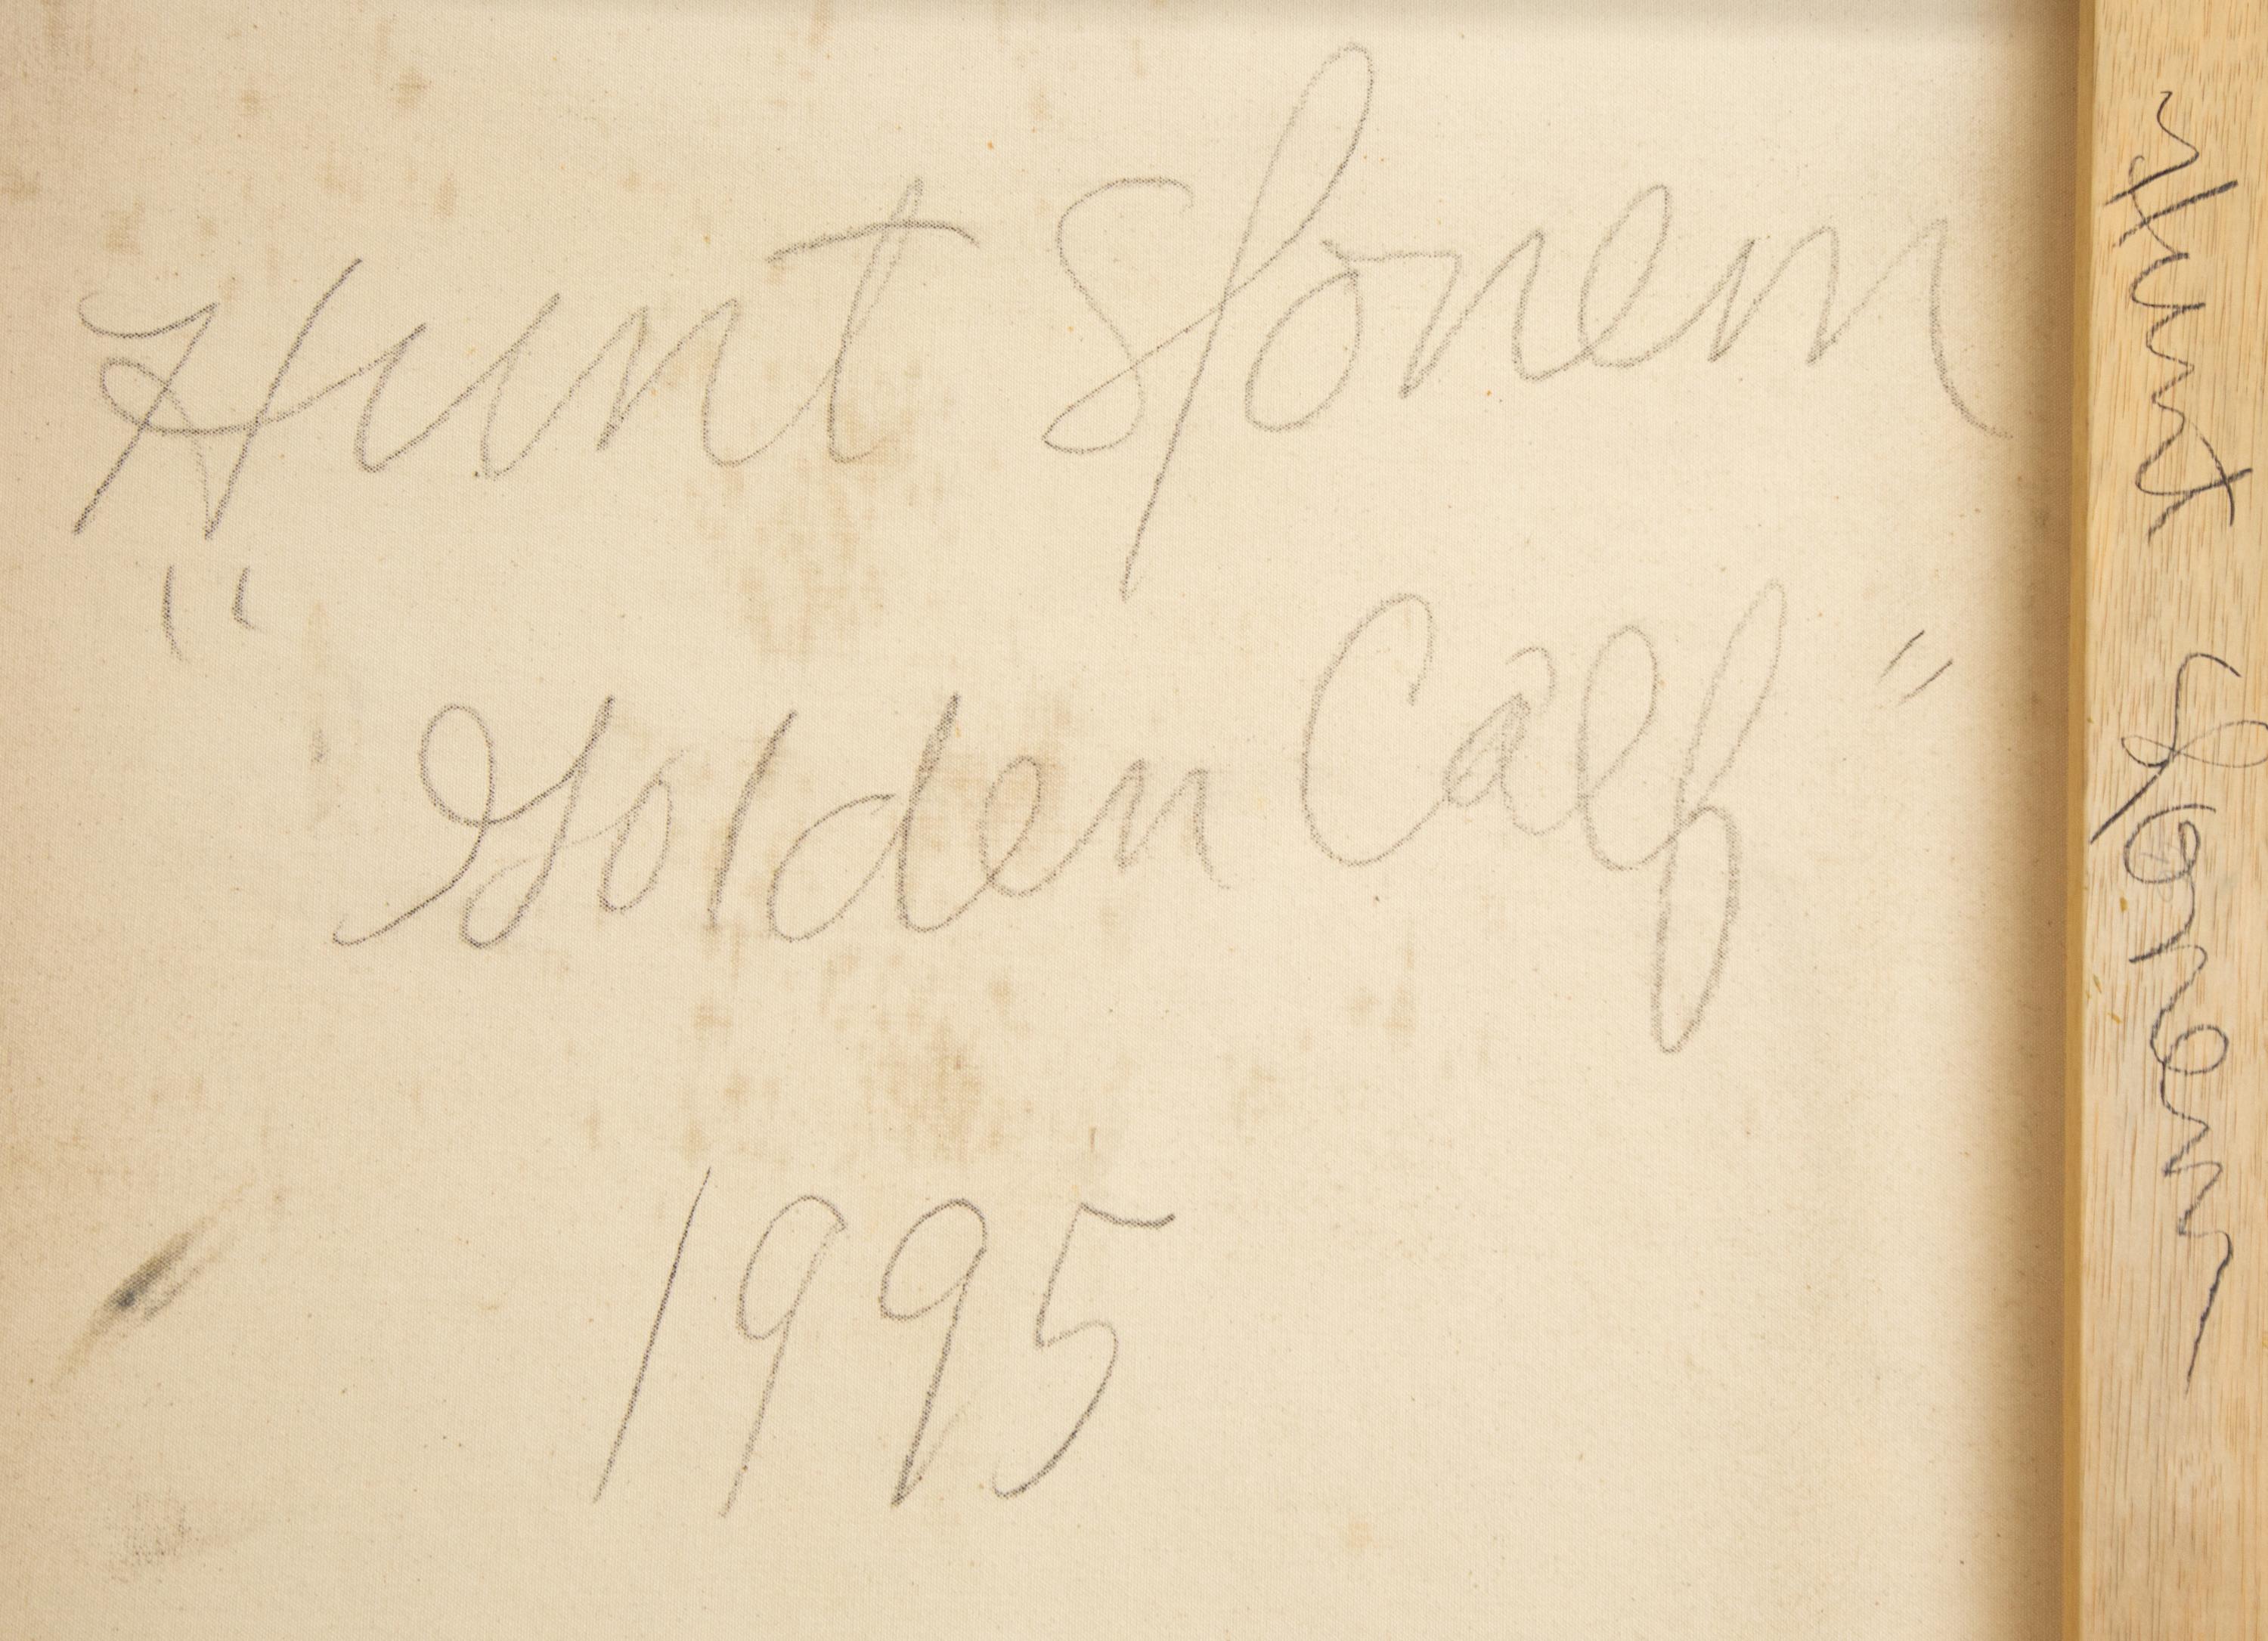 Hunt Slonem
"Golden Calf"
1995
Hunt Slonem